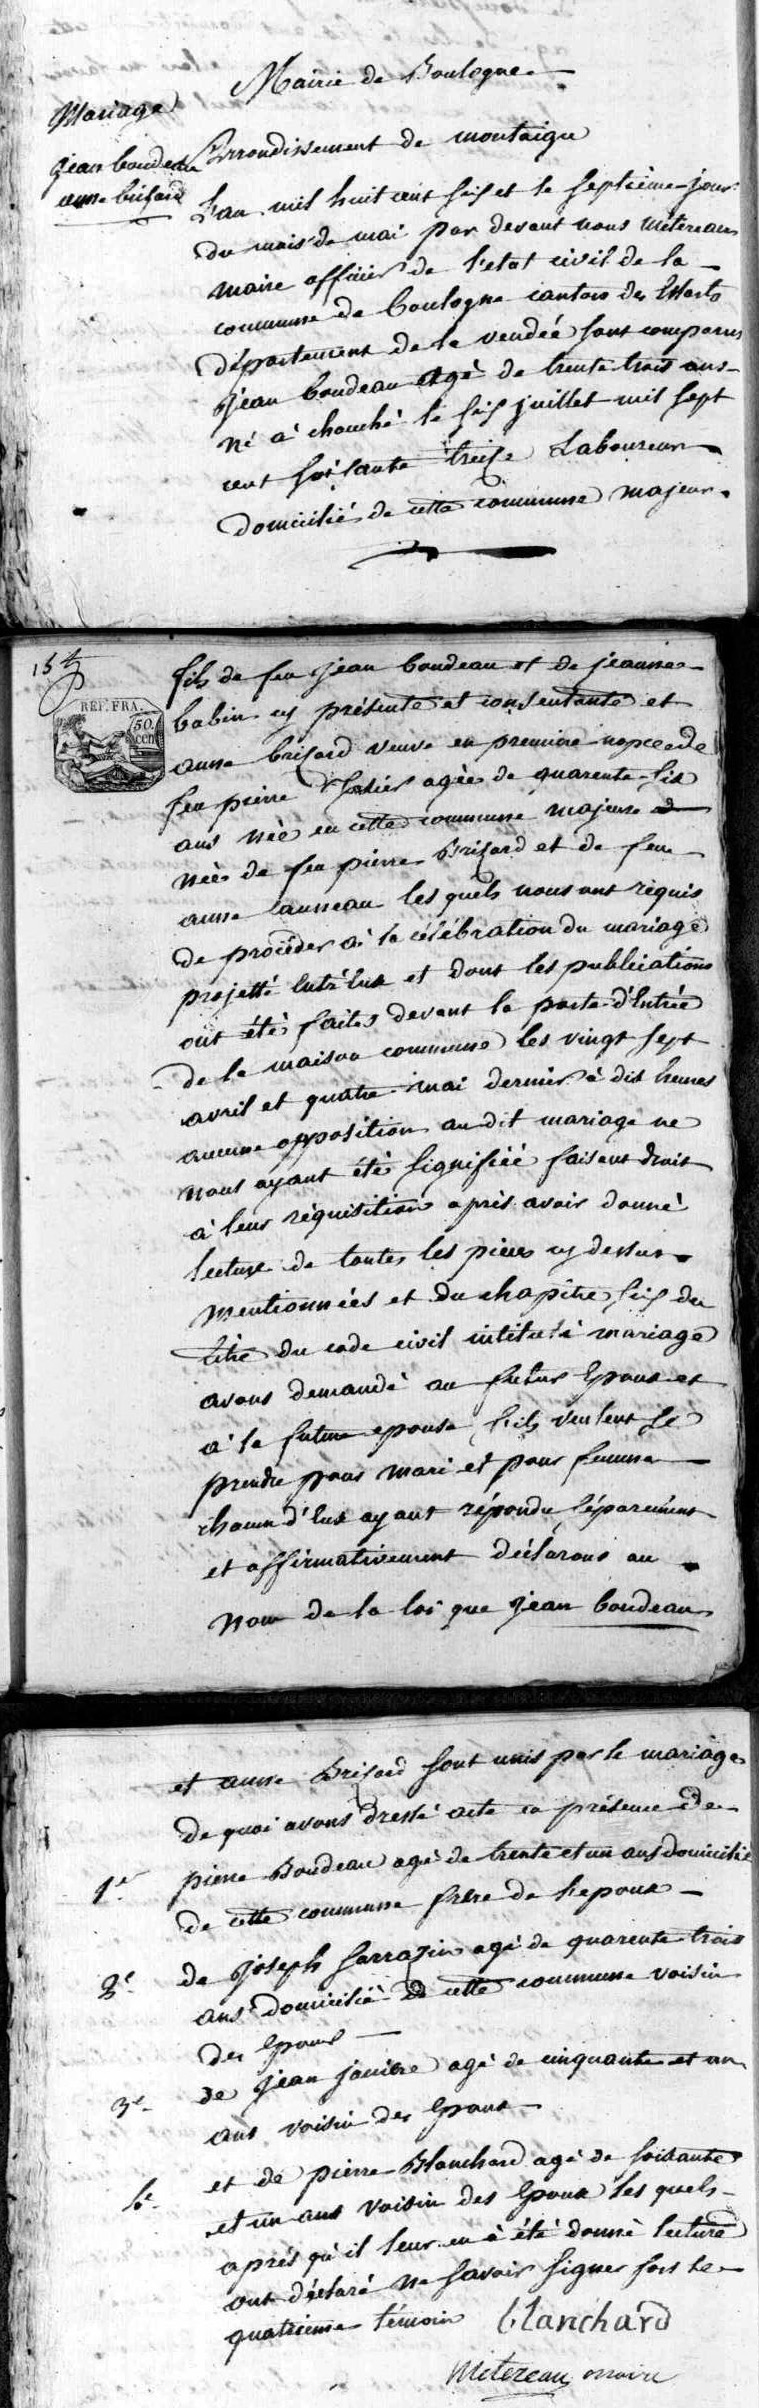 Mairie de Boulogne
Mariage
jean boudeau
anne brisard
Arrondissement de montaigu
L'an mil huit cent seis et le septième jour
du mois de mai par devant nous métereau
maire officier de l'etat civil de la
commune de boulogne canton des Essarts
département de la vendée sont comparus
jean boudeau agé de trente trois ans
né à chauché le seis juillet mil sept
cent soisante treise Laboureur
domicilié de cette commune majeur.
15
REP. FRA.
50.
cen
fils de feu jean boudeau et de jeanne
babin cy présente et consentante et
anne brisard veuve en premiere nopce de
feu pierre agée de quarente six
ans née en cette commune majeure
née de feu pierre Brisard et de feue
anne launeau les quels nous ont réquis
de procéder à la célébration du mariage
projetté entr'eux et dont les publications
ont été faites devant la porte d'Entrée
de la maison commune les vingt sept
avril et quatre mai dernier à dix heures
aucune opposition au dit mariage ne
nous ayant été signifiée faisant droit
à leur réquisition après avoir donné
lecture de toutes les pièces cy dessus
mentionnées et du chapitre seis du
titre du code civil intitulé mariage
avons demandé au futur Epoux et
à la future epouse s'ils veulent se
prendre pour mari et pour femme
chacun d'eux ayant répondu séparément
et affirmativement déclarons au
nom de la loi que jean boudeau
et anne Brisard sont unis par le mariage
de quoi avons dressé acte en présence de
1er pierre Boudeau agé de trente et un ans domicilié
de cette commune frere de l'epoux
2e de joseph sarrazin agé de quarente trois
ans domicilié de cette commune voisin
des Epoux
3e de jean agé de cinquante et un
ans voisin des Epoux
4e et de pierre Blanchard agé de soisante
et un ans voisin des Epoux les quels
après qu'il leur en à été donné lecture
ont déclaré ne savoir signer fors le
quatrieme témoin blanchard
Metereau maire